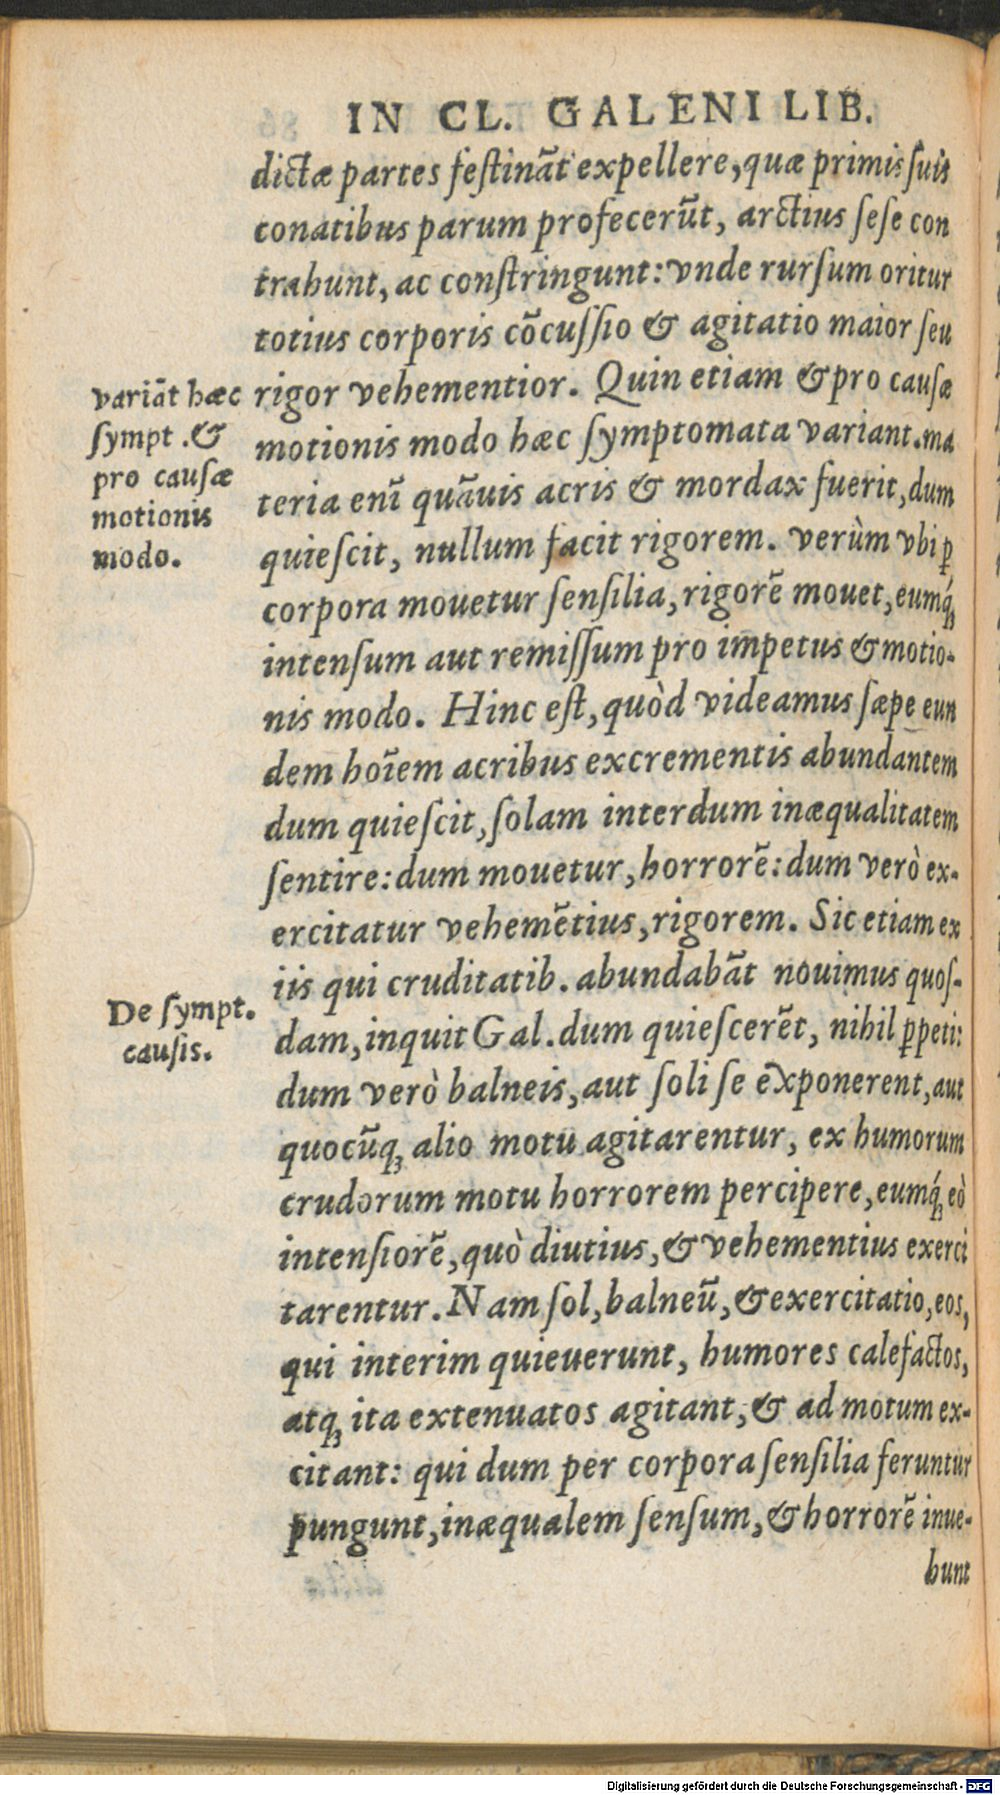 IN CL. GALENI LIB.
dictæ partes feſtinãt expellere, quæ primis ſuis
conatibus parum profecerũt, arctius ſeſe con
trahunt, ac conſtringunt: vnde rurſum oritur
totius corporis cõcuſſio & agitatio maior ſeu
rigor vehementior. Quin etiam & pro cauſæ
motionis modo hæc ſymptomata variant. ma
teria enĩ quãuis acris & mordax fuerit, dum
quieſcit, nullum facit rigorem. verùm vbi ꝑ
corpora mouetur ſenſilia, rigorẽ mouet, eumq́ꝫ
intenſum aut remiſſum pro impetus & motio-
nis modo. Hinc eſt, quòd videamus ſæpe eun
dem hoĩem acribus excrementis abundantem
dum quieſcit, ſolam interdum inæqualitatem
ſentire: dum mouetur, horrorẽ: dum verò ex-
ercitatur vehemẽtius, rigorem. Sic etiam ex
iis qui cruditatib. abundabãt nouimus quoſ-
dam, inquit Gal. dum quieſcerẽt, nihil ꝑpeti:
dum verò balneis, aut ſoli ſe exponerent, aut
quocũqꝫ alio motu agitarentur, ex humorum
crudorum motu horrorem percipere, eumq́ꝫ eò
intenſiorẽ, quò diutius, & vehementius exerci
tarentur. Nam ſol, balneũ, & exercitatio, eos,
qui interim quieuerunt, humores calefactos,
atqꝫ ita extenuatos agitant, & ad motum ex-
citant: qui dum per corpora ſenſilia feruntur
pungunt, inæqualem ſenſum, & horrorẽ inue-
hunt
variãt hæc
ſympt. &
pro cauſæ
motionis
modo.
De ſympt.
cauſis.
Digitalisierung gefördert durch die Deutsche Forschungsgemeinschaft - DFG